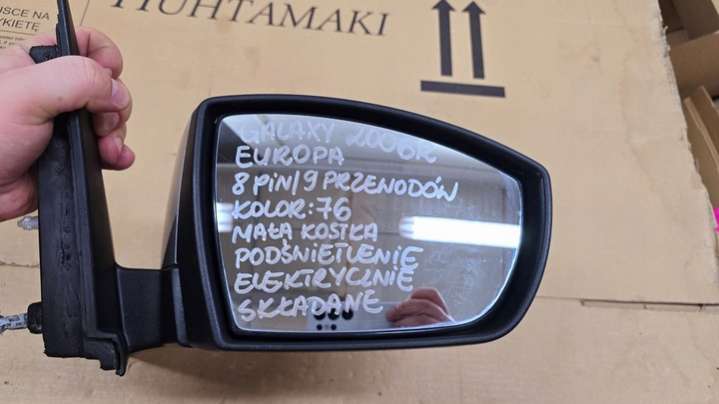 SCE NA
YKIETĘ
HUHTAMAKI
GALAXY 2006R
EUROPA
8 PIN/9 PRZEWODÓW
KOLOR: 76
MAŁA KOSTKA
PODŚWIETLENIE
ELEKTRYCZNIE
SKŁADANE